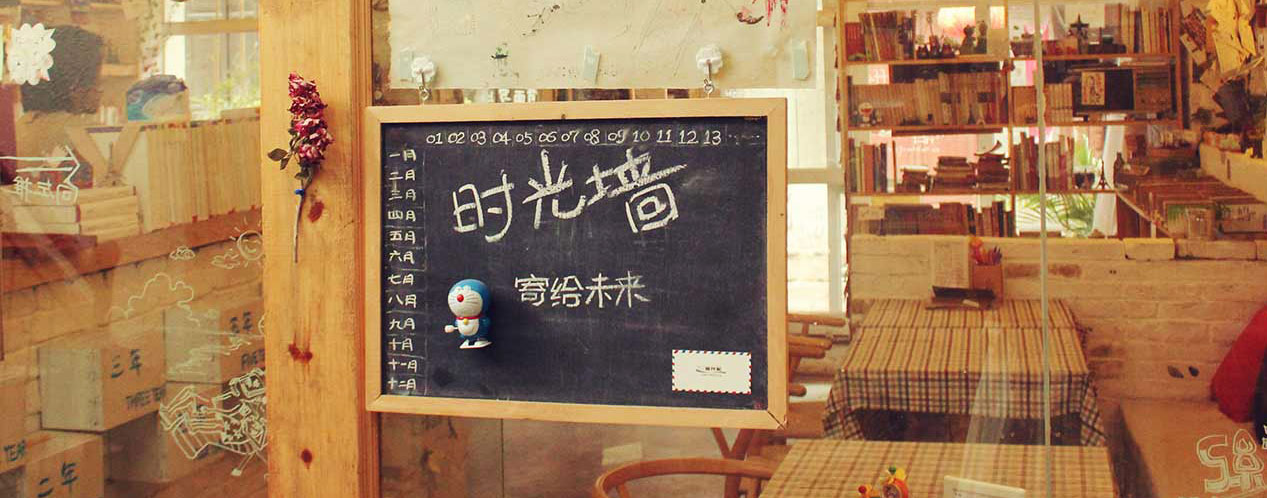 01 02 03 04 05 06 07 08 09 10 11 12 13 ......
一月
二月
三月
四月
五月
六月
七月
八月
九月
十月
十一月
十二月
时光墙
寄给未来
三年
THREE YEAR
五年
二年
YEAR